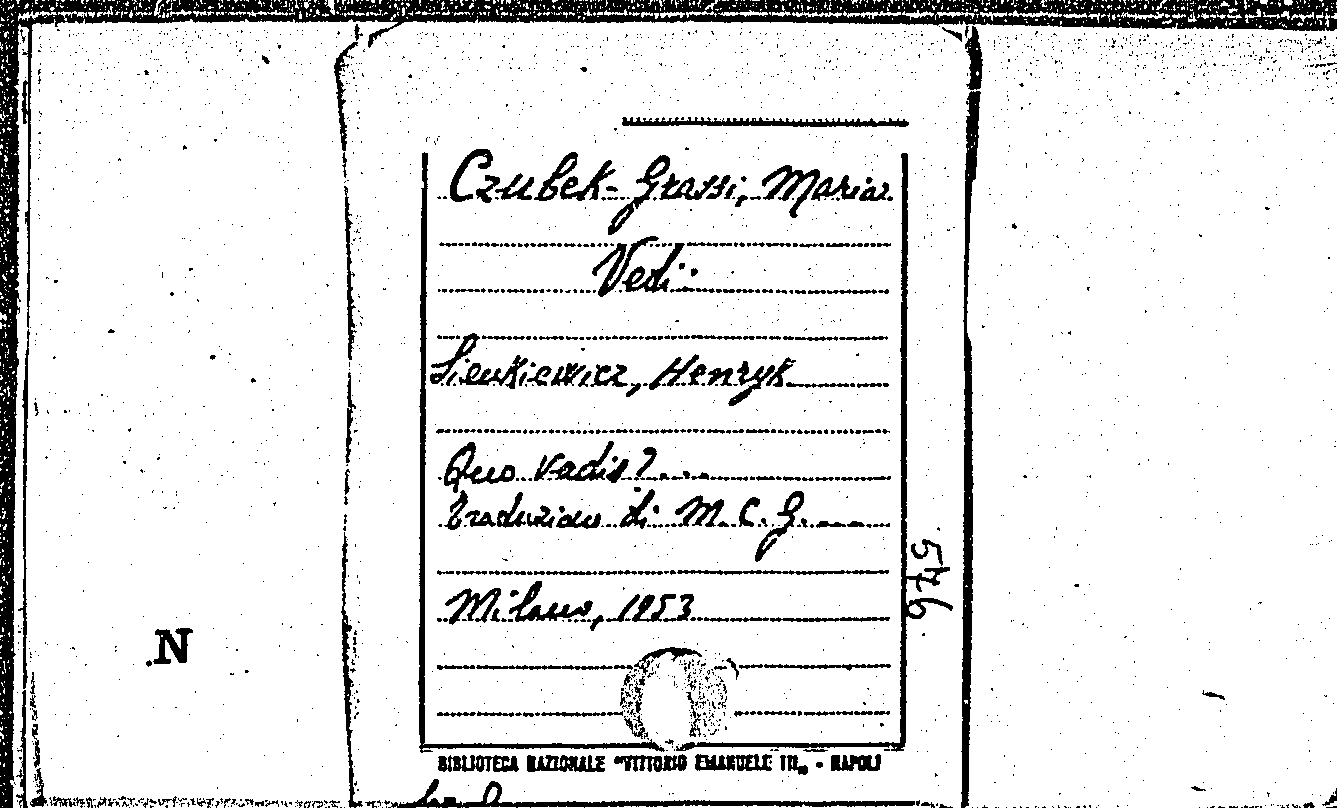 Czubek-Grassi, Maria
Vedi:
Sienkiewicz, Henryk
Quo vadis?...
Traduzione di M. C. G. ....
Milano, 1953
546
N
BIBLIOTECA NAZIONALE "VITTORIO EMANUELE III„ - NAPOLI